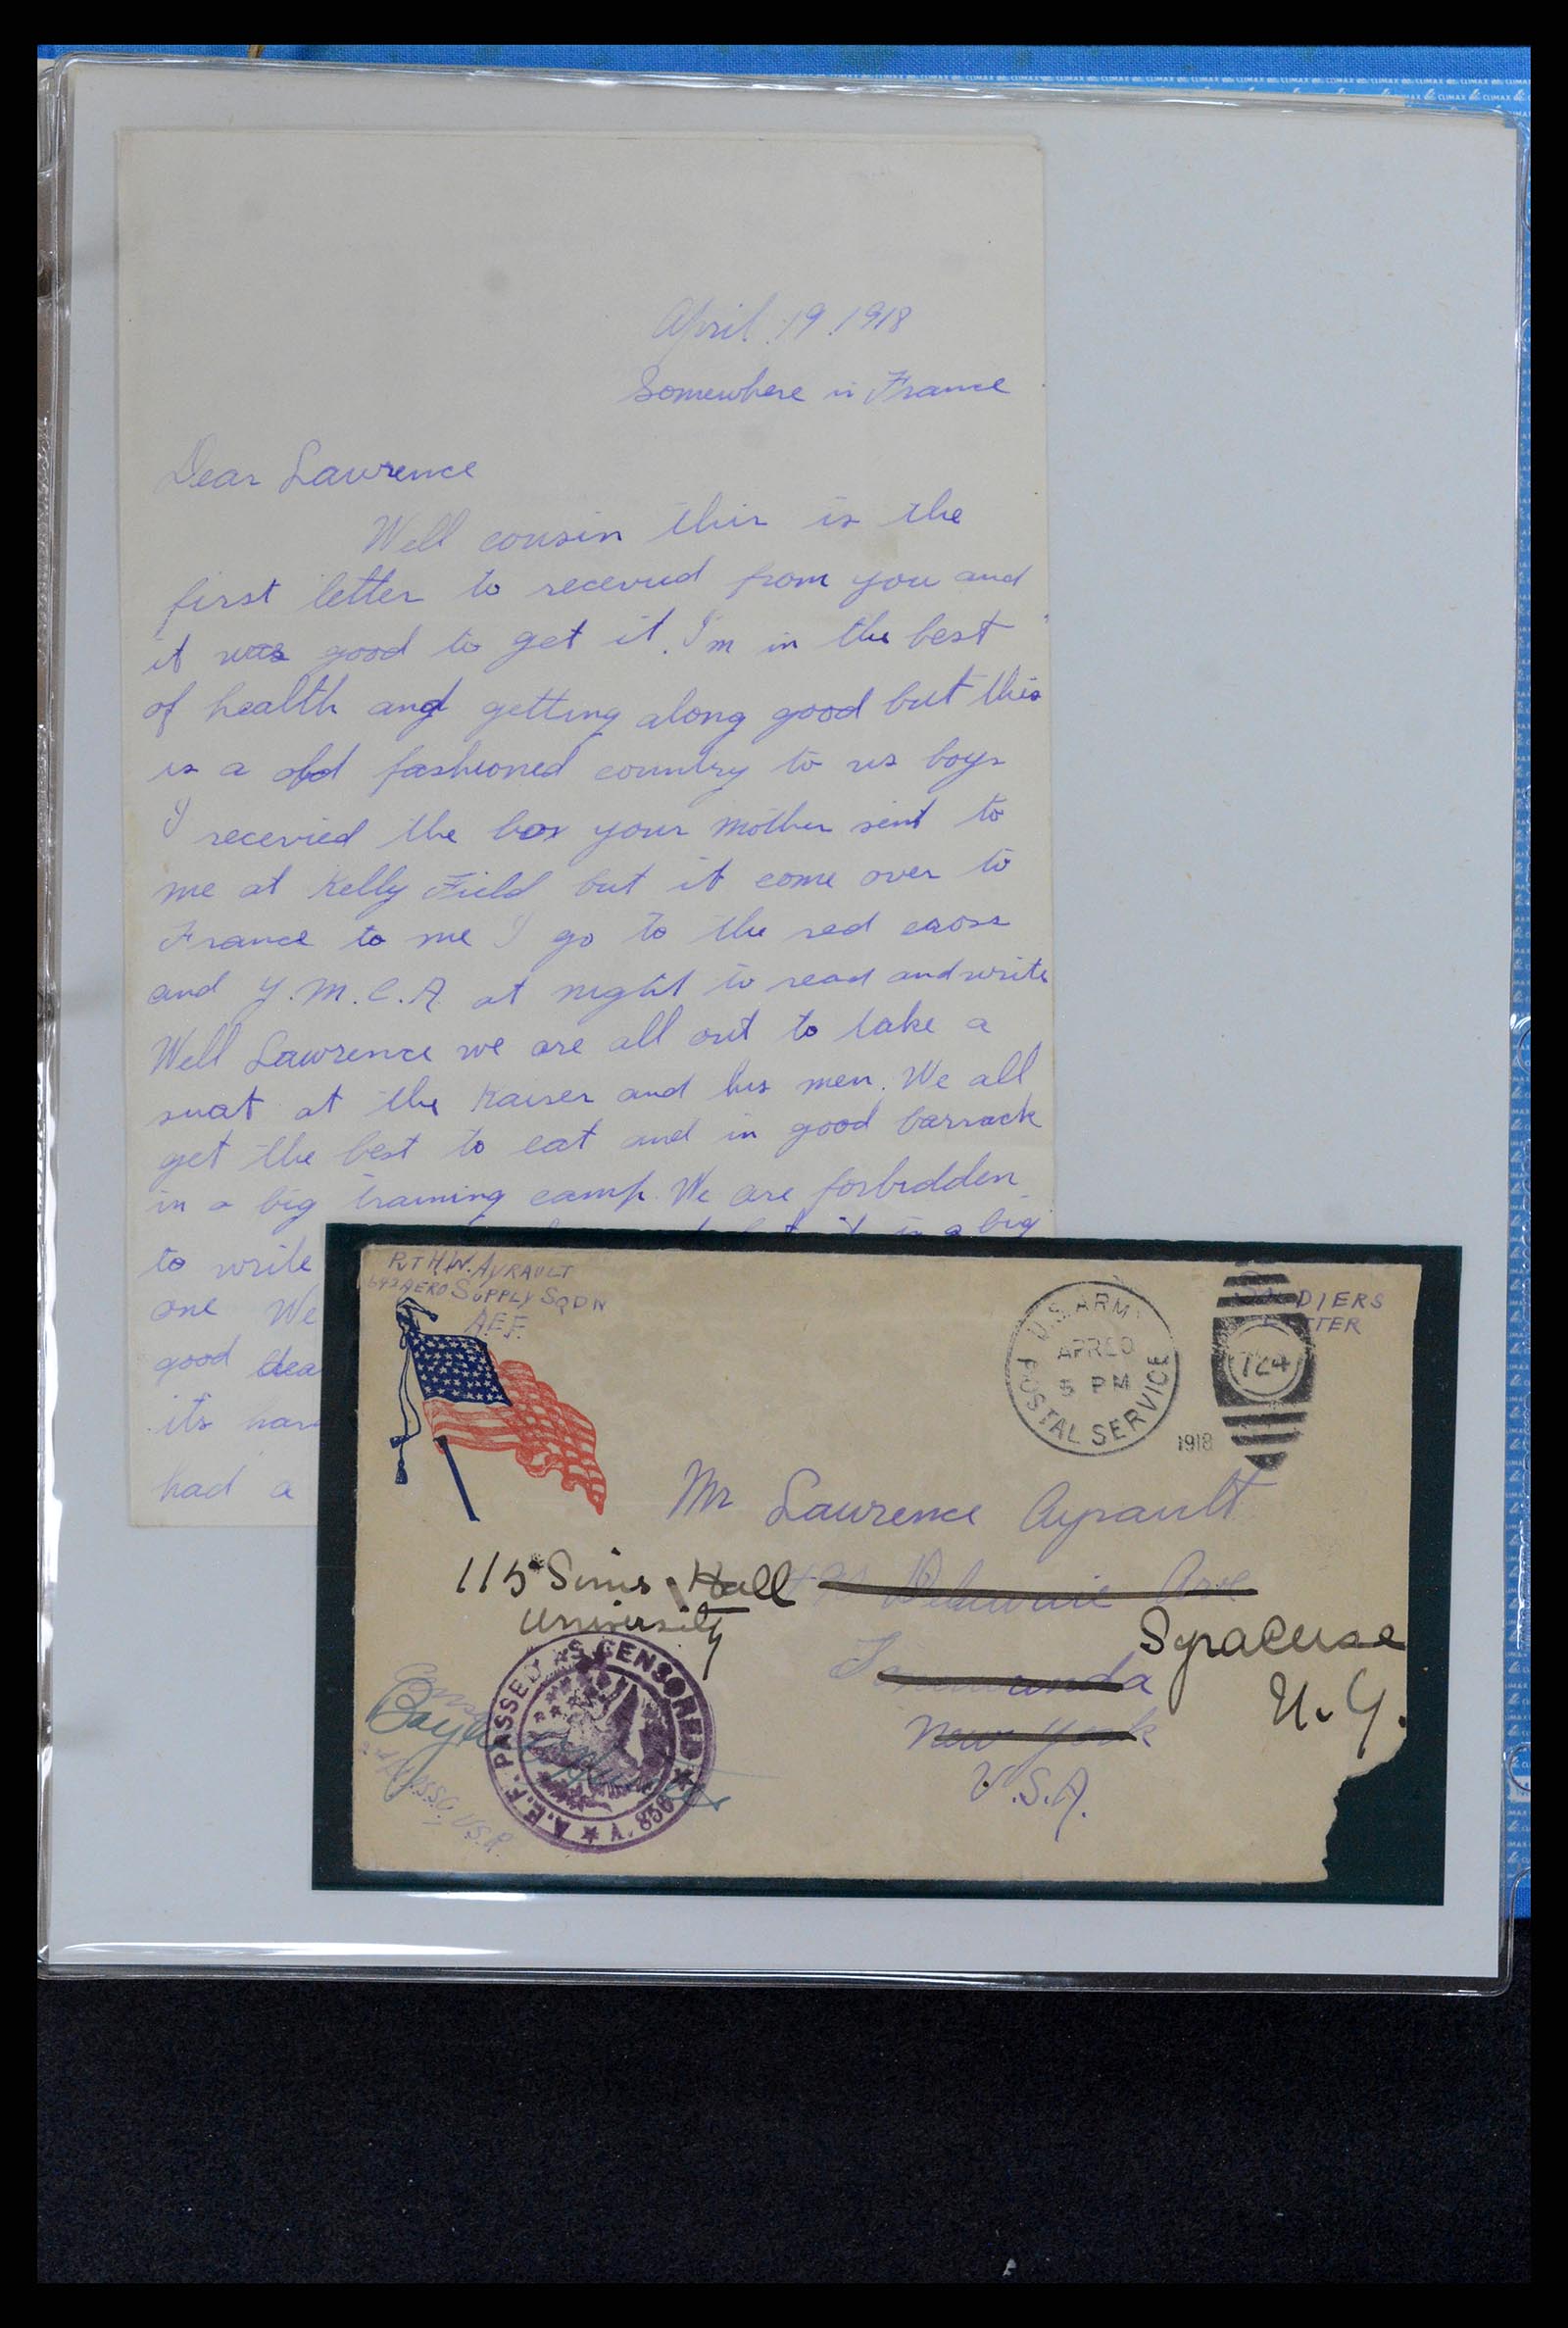 April 19 1918
Somewhere in France
Dear Lawrence
Well cousin this is the
first letter to recevied from you and
it was good to get it. I'm in the best
of health and getting along good but this
is a old fashioned country to us boys
I recevied the box your mother sent to
me at Kelly Field but it come over to
France to me I go to the red cross
and Y.M.C.A. at night to read and write
Well Lawrence we are all out to take a
swat at the Kaiser and his men. We all
get the best to eat and in good barrack
in a big training camp. We are forbidden
to write
it is a big
one We
good
its
had a
PVT H.W. AYRAULT
AERO SUPPLY SQDN
A.E.F.
U.S. ARMY
POSTAL SERVICE
APR 20
5 PM
1918
724
SOLDIERS
LETTER
Mr Lawrence Ayrault
115 Sims Hall
Delaware Ave
University
Syracuse
N.Y.
New York
U.S.A.
A.E.F. PASSED AS CENSORED
A. 856
CLIMAX